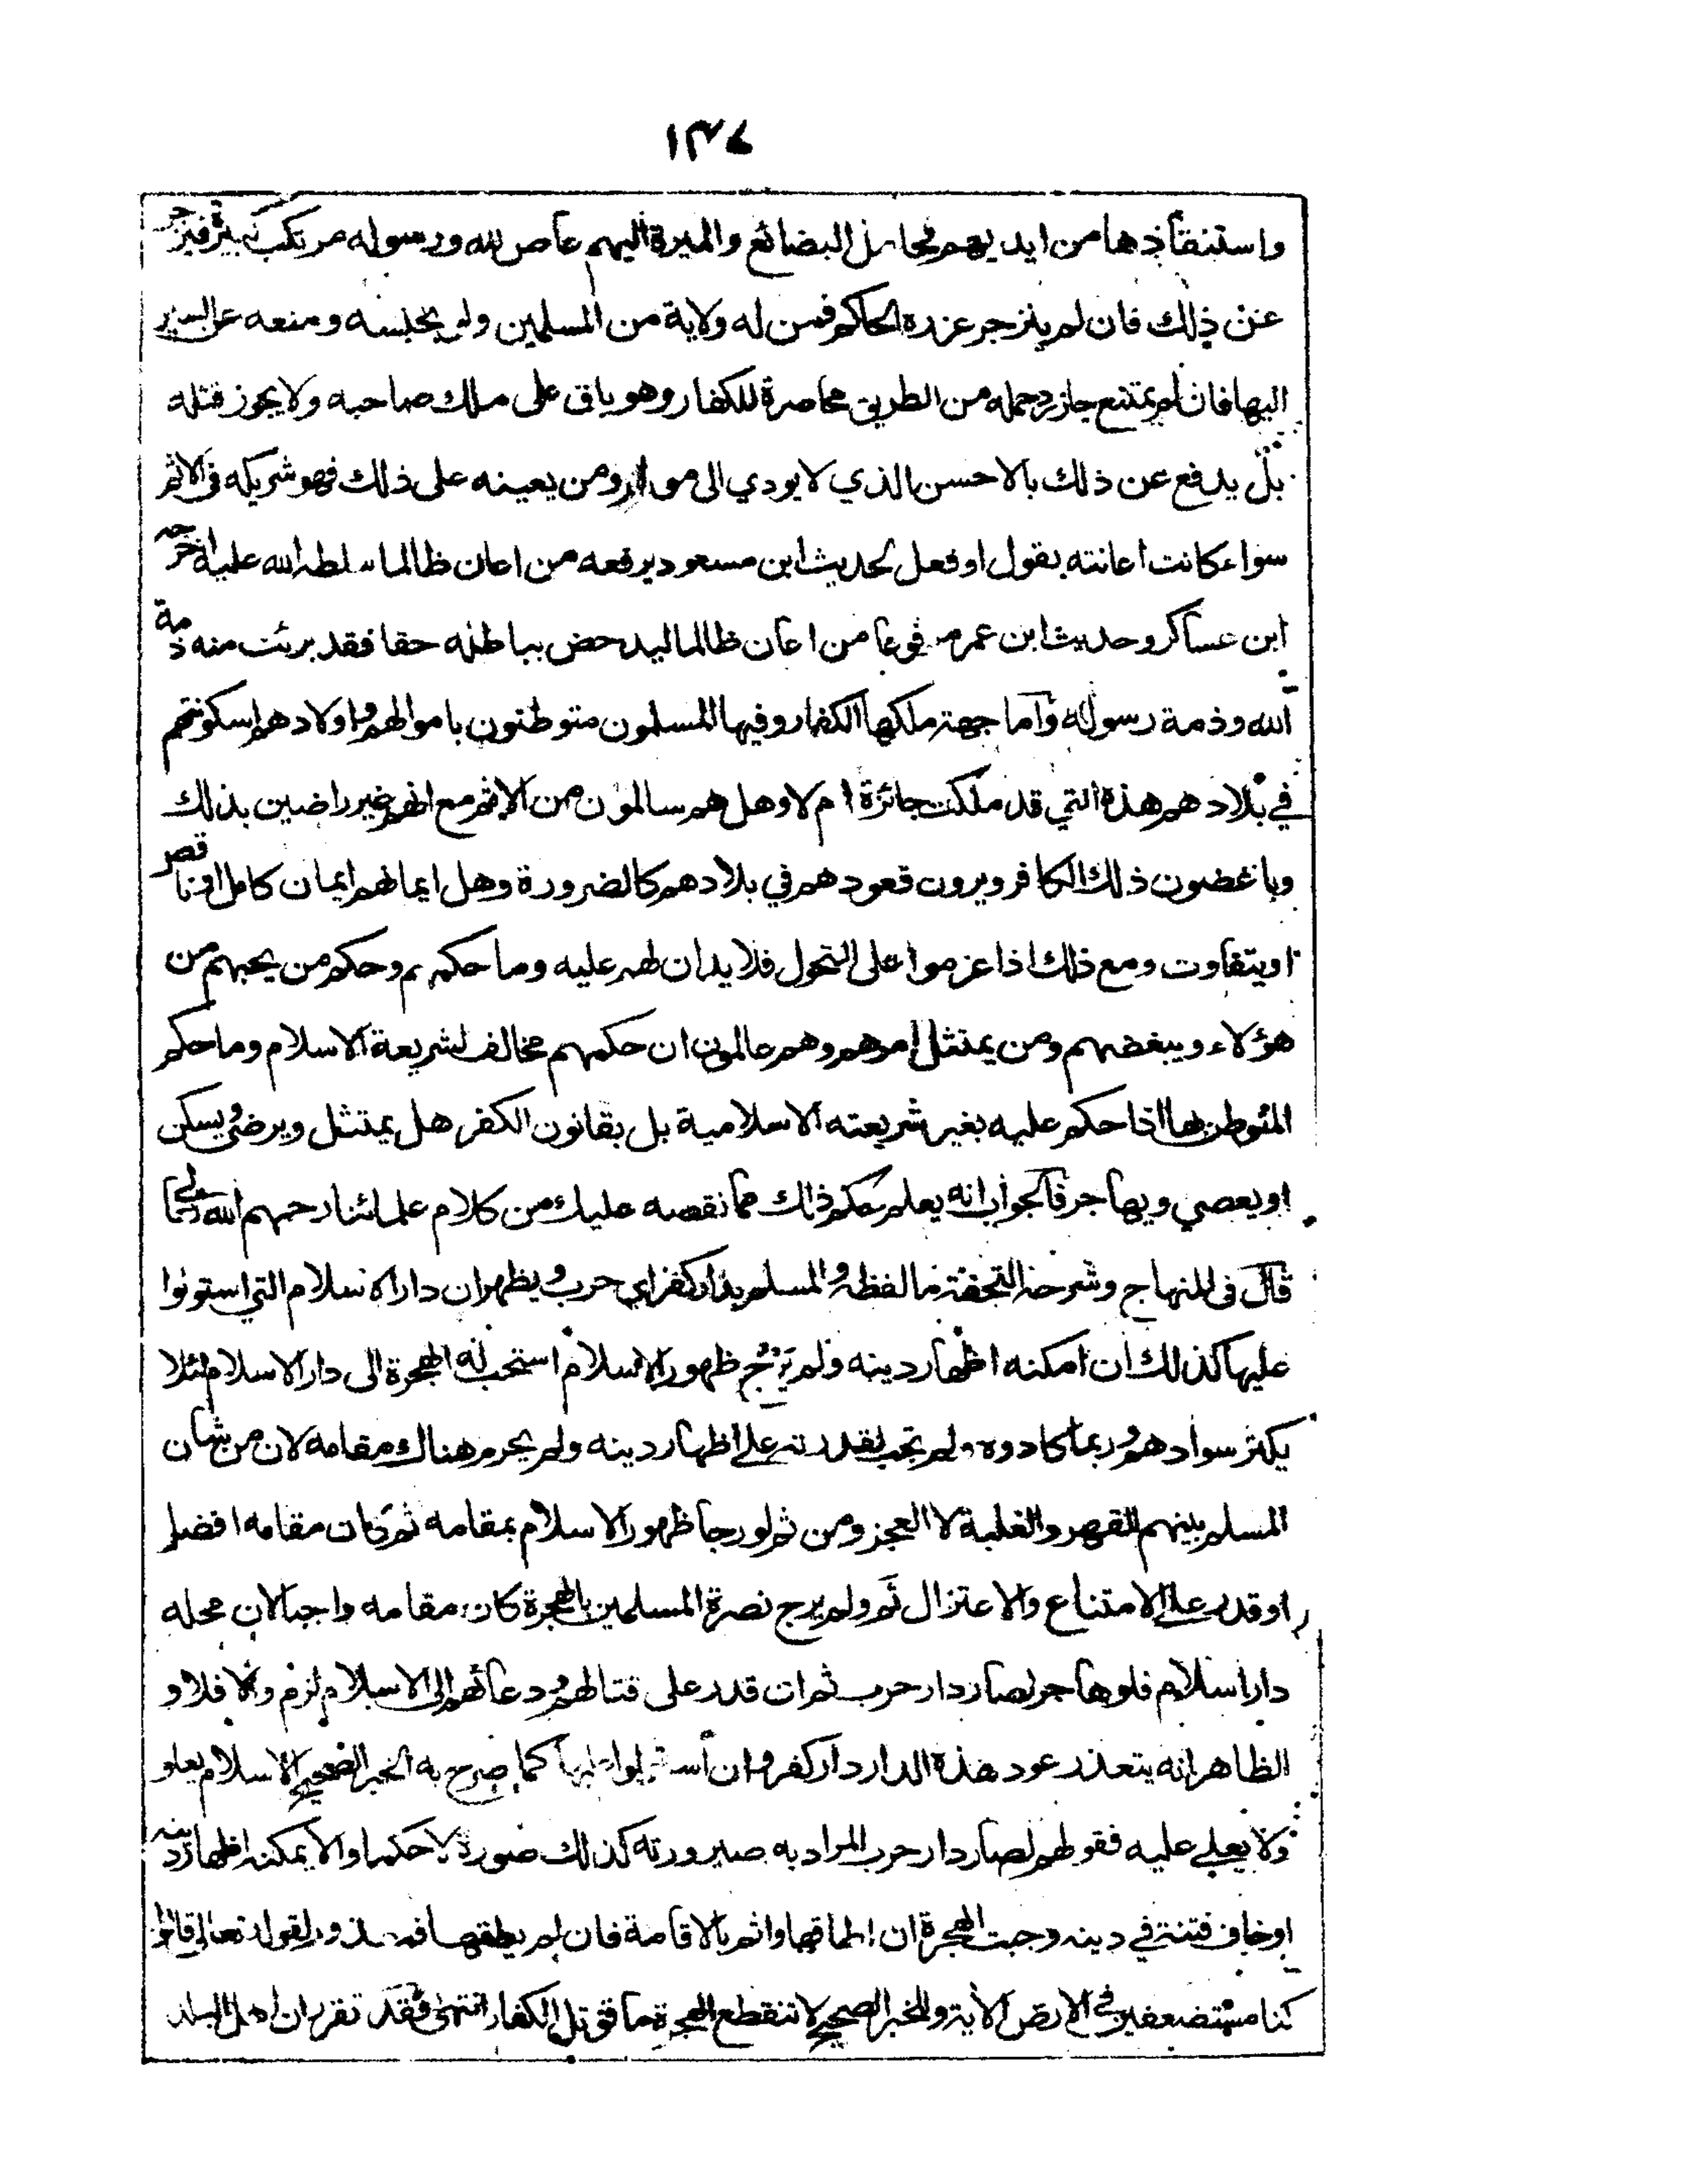 ١٣٧
واستنقاذها من ايديهم البضائع والميرة اليهم عاص لله ورسوله مرتكب كبيرة
عن ذلك فان لم ينزجر عزره الحاكم فمن له ولاية من المسلمين ولو بحبسه ومنعه عن السير
اليها فان لم يمتنع جاز رد حمله من الطريق محاصرة للكفار وهو باق على ملك صاحبه ولا يجوز قتله
بل يدفع عن ذلك بالاحسن الذي لا يودي الى ومن يعينه على ذلك فهو شريكه في الاثم
سواء كانت اعانته بقول او فعل لحديث ابن مسعود يرفعه من اعان ظالما سلطه الله عليه اخرجه
ابن عساكر وحديث ابن عمر مرفوعا من اعان ظالما ليدحض بباطله حقا فقد برئت منه ذمة
الله وذمة رسوله واما جهة ملكها الكفار وفيها المسلمون متوطنون باموالهم واولادهم اسكونتهم
في بلادهم هذه التي قد ملكت جائزة ام لا وهل هم سالمون من الاثم مع انهم غير راضين بذلك
وباغضون ذلك الكافر ويرون قعودهم في بلادهم كالضرورة وهل ايمانهم ايمان كامل او ناقص
او يتفاوت ومع ذلك اذا عزموا على التحول فلا يدان لهم عليه وما حكمهم وحكم من يحبهم من
هؤلاء ويبغضهم ومن يمتثل امرهم وهم عالمون ان حكمهم مخالف لشريعة الاسلام وما حكم
المتوطن بها اذا حكم عليه بغير شريعته الاسلامية بل بقانون الكفر هل يمتثل ويرضى ويسكن
او يعصي ويهاجر فالجواب انه يعلم حكم ذلك مما نقصه عليك من كلام علمائنا رحمهم الله تعالى
قال في المنهاج وشرحه التحفة ما لفظه والمسلم بدار كفر اي حرب ويظهر ان دار الاسلام التي استولوا
عليها كذلك ان امكنه اظهار دينه ولم يرج ظهور الاسلام استحب له الهجرة الى دار الاسلام لئلا
يكثر سوادهم وربما كادوه ولم تجب لقدرته على اظهار دينه ولم يحرم هناك مقامه لان من شان
المسلم بينهم القهر والغلبة لا العجز ومن ثم لو رجا ظهور الاسلام بمقامه ثم كان مقامه افضل
او قدر على الامتناع والاعتزال ثم ولم يرج نصرة المسلمين بالهجرة كان مقامه واجبا لان محله
دار اسلام فلو هاجر لصار دار حرب ثم ان قدر على قتالهم ودعائهم الى الاسلام لزم والا فلا و
الظاهر انه يتعذر عود هذه الدار دار كفر وان استولوا عليها كما صرح به الخبر الصحيح الاسلام يعلو
ولا يعلى عليه فقولهم لصار دار حرب المراد به صيرورته كذلك صورة لا حكما والا يمكنه اظهار دينه
او خاف فتنة في دينه وجبت الهجرة ان اطاقها واثم بالاقامة فان لم يطقها فمعذور لقوله تعالى قالوا
كنا مستضعفين في الارض الاية وللخبر الصحيح لا تنقطع الهجرة ما قوتل الكفار انتهى فقد تقرر ان اهل البلد